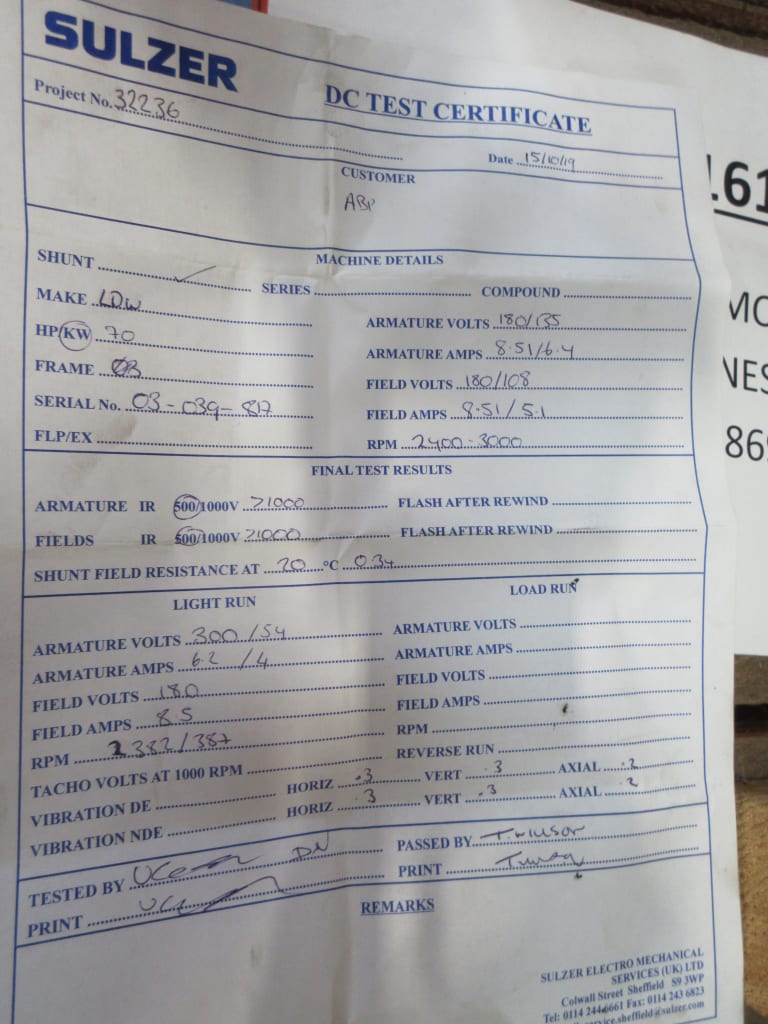 SULZER
DC TEST CERTIFICATE
Project No. 32236
Date 15/10/19
CUSTOMER
ABP
MACHINE DETAILS
SHUNT ✓ SERIES COMPOUND
MAKE LDW
ARMATURE VOLTS 180/135
HP/KW 70
ARMATURE AMPS 8.51/6.4
FRAME
FIELD VOLTS 180/108
SERIAL No. 03-039-817
FIELD AMPS 8.51/5.1
FLP/EX
RPM 2400-3000
FINAL TEST RESULTS
ARMATURE IR 500/1000V >1000 FLASH AFTER REWIND
FIELDS IR 500/1000V >1000 FLASH AFTER REWIND
SHUNT FIELD RESISTANCE AT 20 °C
LIGHT RUN
LOAD RUN
ARMATURE VOLTS 300/54
ARMATURE VOLTS
ARMATURE AMPS 6.2/4
ARMATURE AMPS
FIELD VOLTS 180
FIELD VOLTS
FIELD AMPS 8.5
FIELD AMPS
RPM 2382/387
RPM
TACHO VOLTS AT 1000 RPM
REVERSE RUN
VIBRATION DE HORIZ .3 VERT .3 AXIAL .2
VIBRATION NDE HORIZ .3 VERT .3 AXIAL .2
TESTED BY
PASSED BY
PRINT
PRINT
REMARKS
SULZER ELECTRO MECHANICAL
SERVICES (UK) LTD
Colwall Street Sheffield S9 3WP
Tel: 0114 244 6661 Fax: 0114 243 6823
service.sheffield@sulzer.com
.61
MO
NES
869